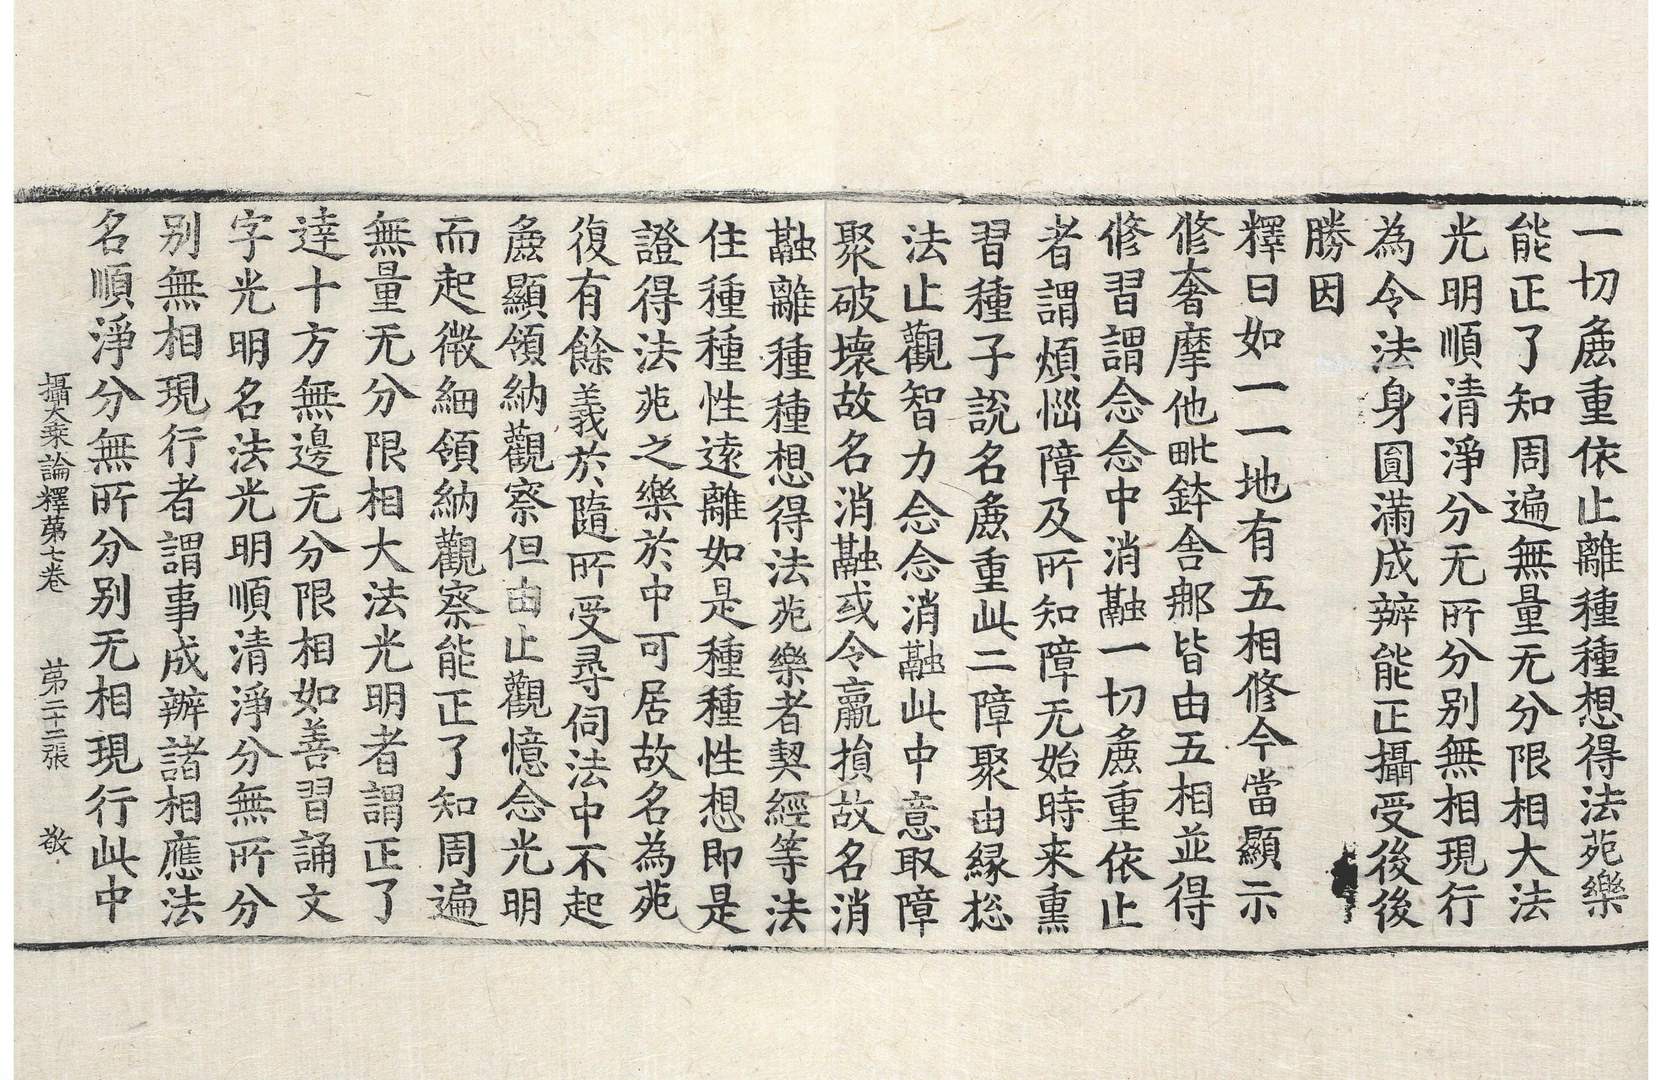 一切麁重依止離種種想得法苑樂
能正了知周遍無量无分限相大法
光明順清淨分无所分别無相現行
為令法身圓滿成辦能正攝受後後
勝因
釋曰如一一地有五相修今當顯示
修奢摩他毗鉢舍那皆由五相並得
修習謂念念中消融一切麁重依止
者謂煩惱障及所知障无始時来熏
習種子說名麁重此二障聚由緣捴
法止觀智力念念消融此中意取障
聚破壞故名消融或令羸損故名消
融離種種想得法苑樂者契經等法
住種種性遠離如是種種性想即是
證得法苑之樂於中可居故名為苑
復有餘義於隨所受尋伺法中不起
麁顯領納觀察但由止觀憶念光明
而起微細領納觀察能正了知周遍
無量无分限相大法光明者謂正了
達十方無邊无分限相如善習誦文
字光明名法光明順清淨分無所分
别無相現行者謂事成辦諸相應法
名順淨分無所分别无相現行此中
攝大乘論釋苐七卷 苐二十二張 敬